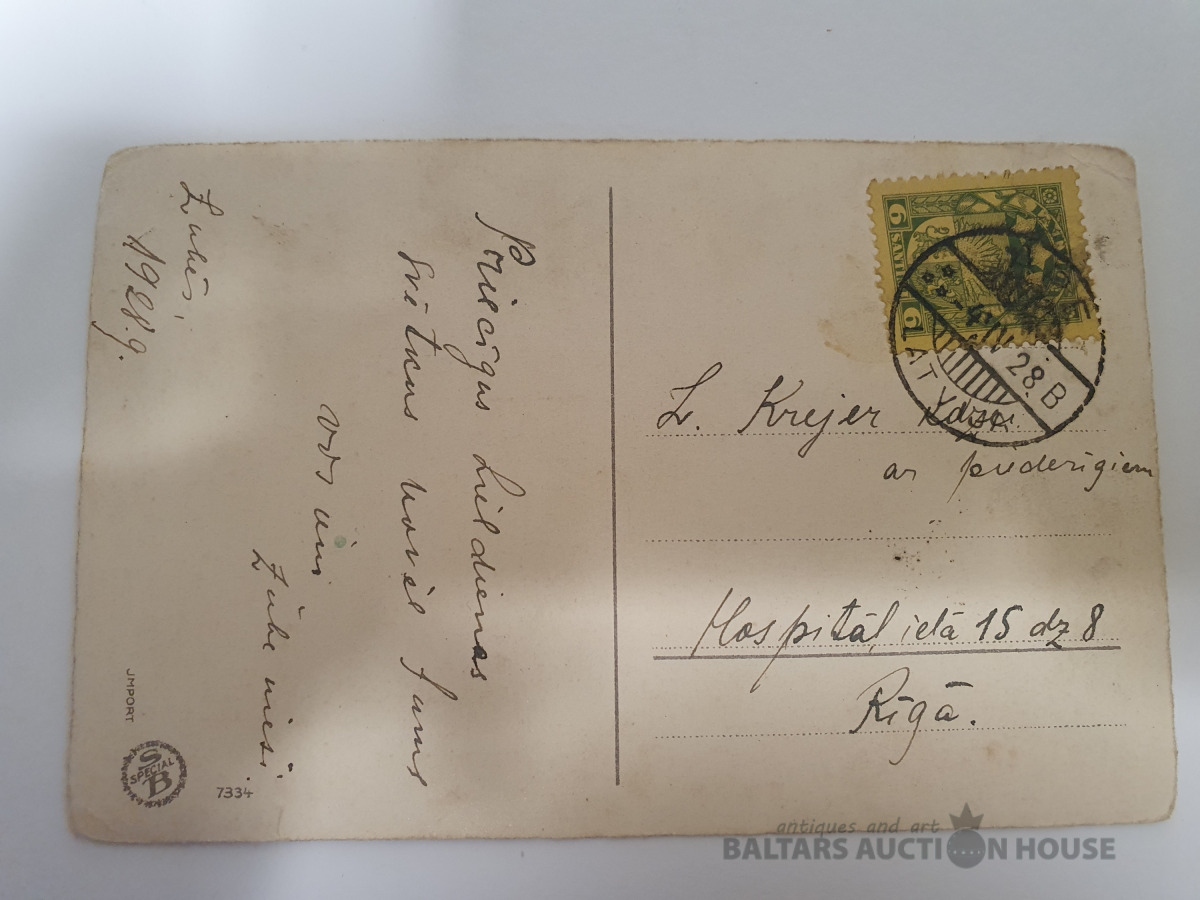 Priecīgus Lieldienas
svētkus novēl Jums
visiem
1928.g.
JMPORT
S
SPECIAL
B
7334
6
6
LATVIJA
28.B
L. Krejer kdze.
ar piederīgiem
Hospitāļ ielā 15 dz 8
Rīgā.
antiques and art
BALTARS AUCTION HOUSE